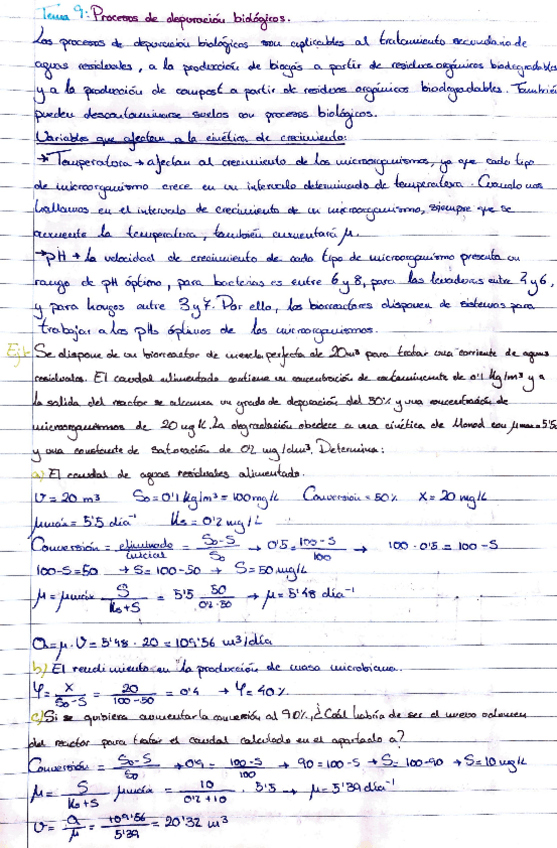 Tema 9: Procesos de depuración biológicos.
Los procesos de depuración biológicos son aplicables al tratamiento secundario de
aguas residuales, a la producción de biogás a partir de residuos orgánicos biodegradables
y a la producción de compost a partir de residuos orgánicos biodegradables. También
pueden descontaminarse suelos con procesos biológicos.
Variables que afectan a la cinética de crecimiento:
→ Temperatura → afectan al crecimiento de los microorganismos, ya que cada tipo
de microorganismo crece en un intervalo determinado de temperatura. Cuando nos
hallamos en el intervalo de crecimiento de un microorganismo, siempre que se
aumente la temperatura, también aumentará μ.
→ pH → la velocidad de crecimiento de cada tipo de microorganismo presenta un
rango de pH óptimo, para bacterias es entre 6 y 8, para las levaduras entre 2 y 6,
y para hongos entre 3 y 7. Por ello, los biorreactores disponen de sistemas para
trabajar a los pHs óptimos de los microorganismos.
Ej: Se dispone de un biorreactor de mezcla perfecta de 20m³ para tratar una corriente de aguas
residuales. El caudal alimentado contiene una concentración de contaminante de 0'1 Kg/m³ y a
la salida del reactor se alcanza un grado de depuración del 50% y una concentración de
microorganismos de 20 mg/L. La degradación obedece a una cinética de Monod con μmax = 5'5
y una constante de saturación de 0'2 mg/dm³. Determina:
a) El caudal de aguas residuales alimentado.
V = 20 m³ S₀ = 0'1 Kg/m³ = 100 mg/L Conversión = 50% X = 20 mg/L
μmáx = 5'5 día⁻¹ Ks = 0'2 mg/L
Conversión = eliminado/inicial = S₀-S/S₀ → 0'5 = 100-S/100 → 100·0'5 = 100-S
100-S = 50 → S = 100-50 → S = 50 mg/L
μ = μmáx S/Ks+S = 5'5 50/0'2+50 → μ = 5'48 día⁻¹
Q = μ·V = 5'48·20 = 109'56 m³/día
b) El rendimiento en la producción de masa microbiana.
Y = X/S₀-S = 20/100-50 = 0'4 → Y = 40%
c) Si se quisiera aumentar la conversión al 90%, ¿Cuál habría de ser el nuevo volumen
del reactor para tratar el caudal calculado en el apartado a?
Conversión = S₀-S/S₀ → 0'9 = 100-S/100 → 90 = 100-S → S = 100-90 → S = 10 mg/L
μ = S/Ks+S μmáx = 10/0'2+10 · 5'5 → μ = 5'39 día⁻¹
V = Q/μ = 109'56/5'39 = 20'32 m³